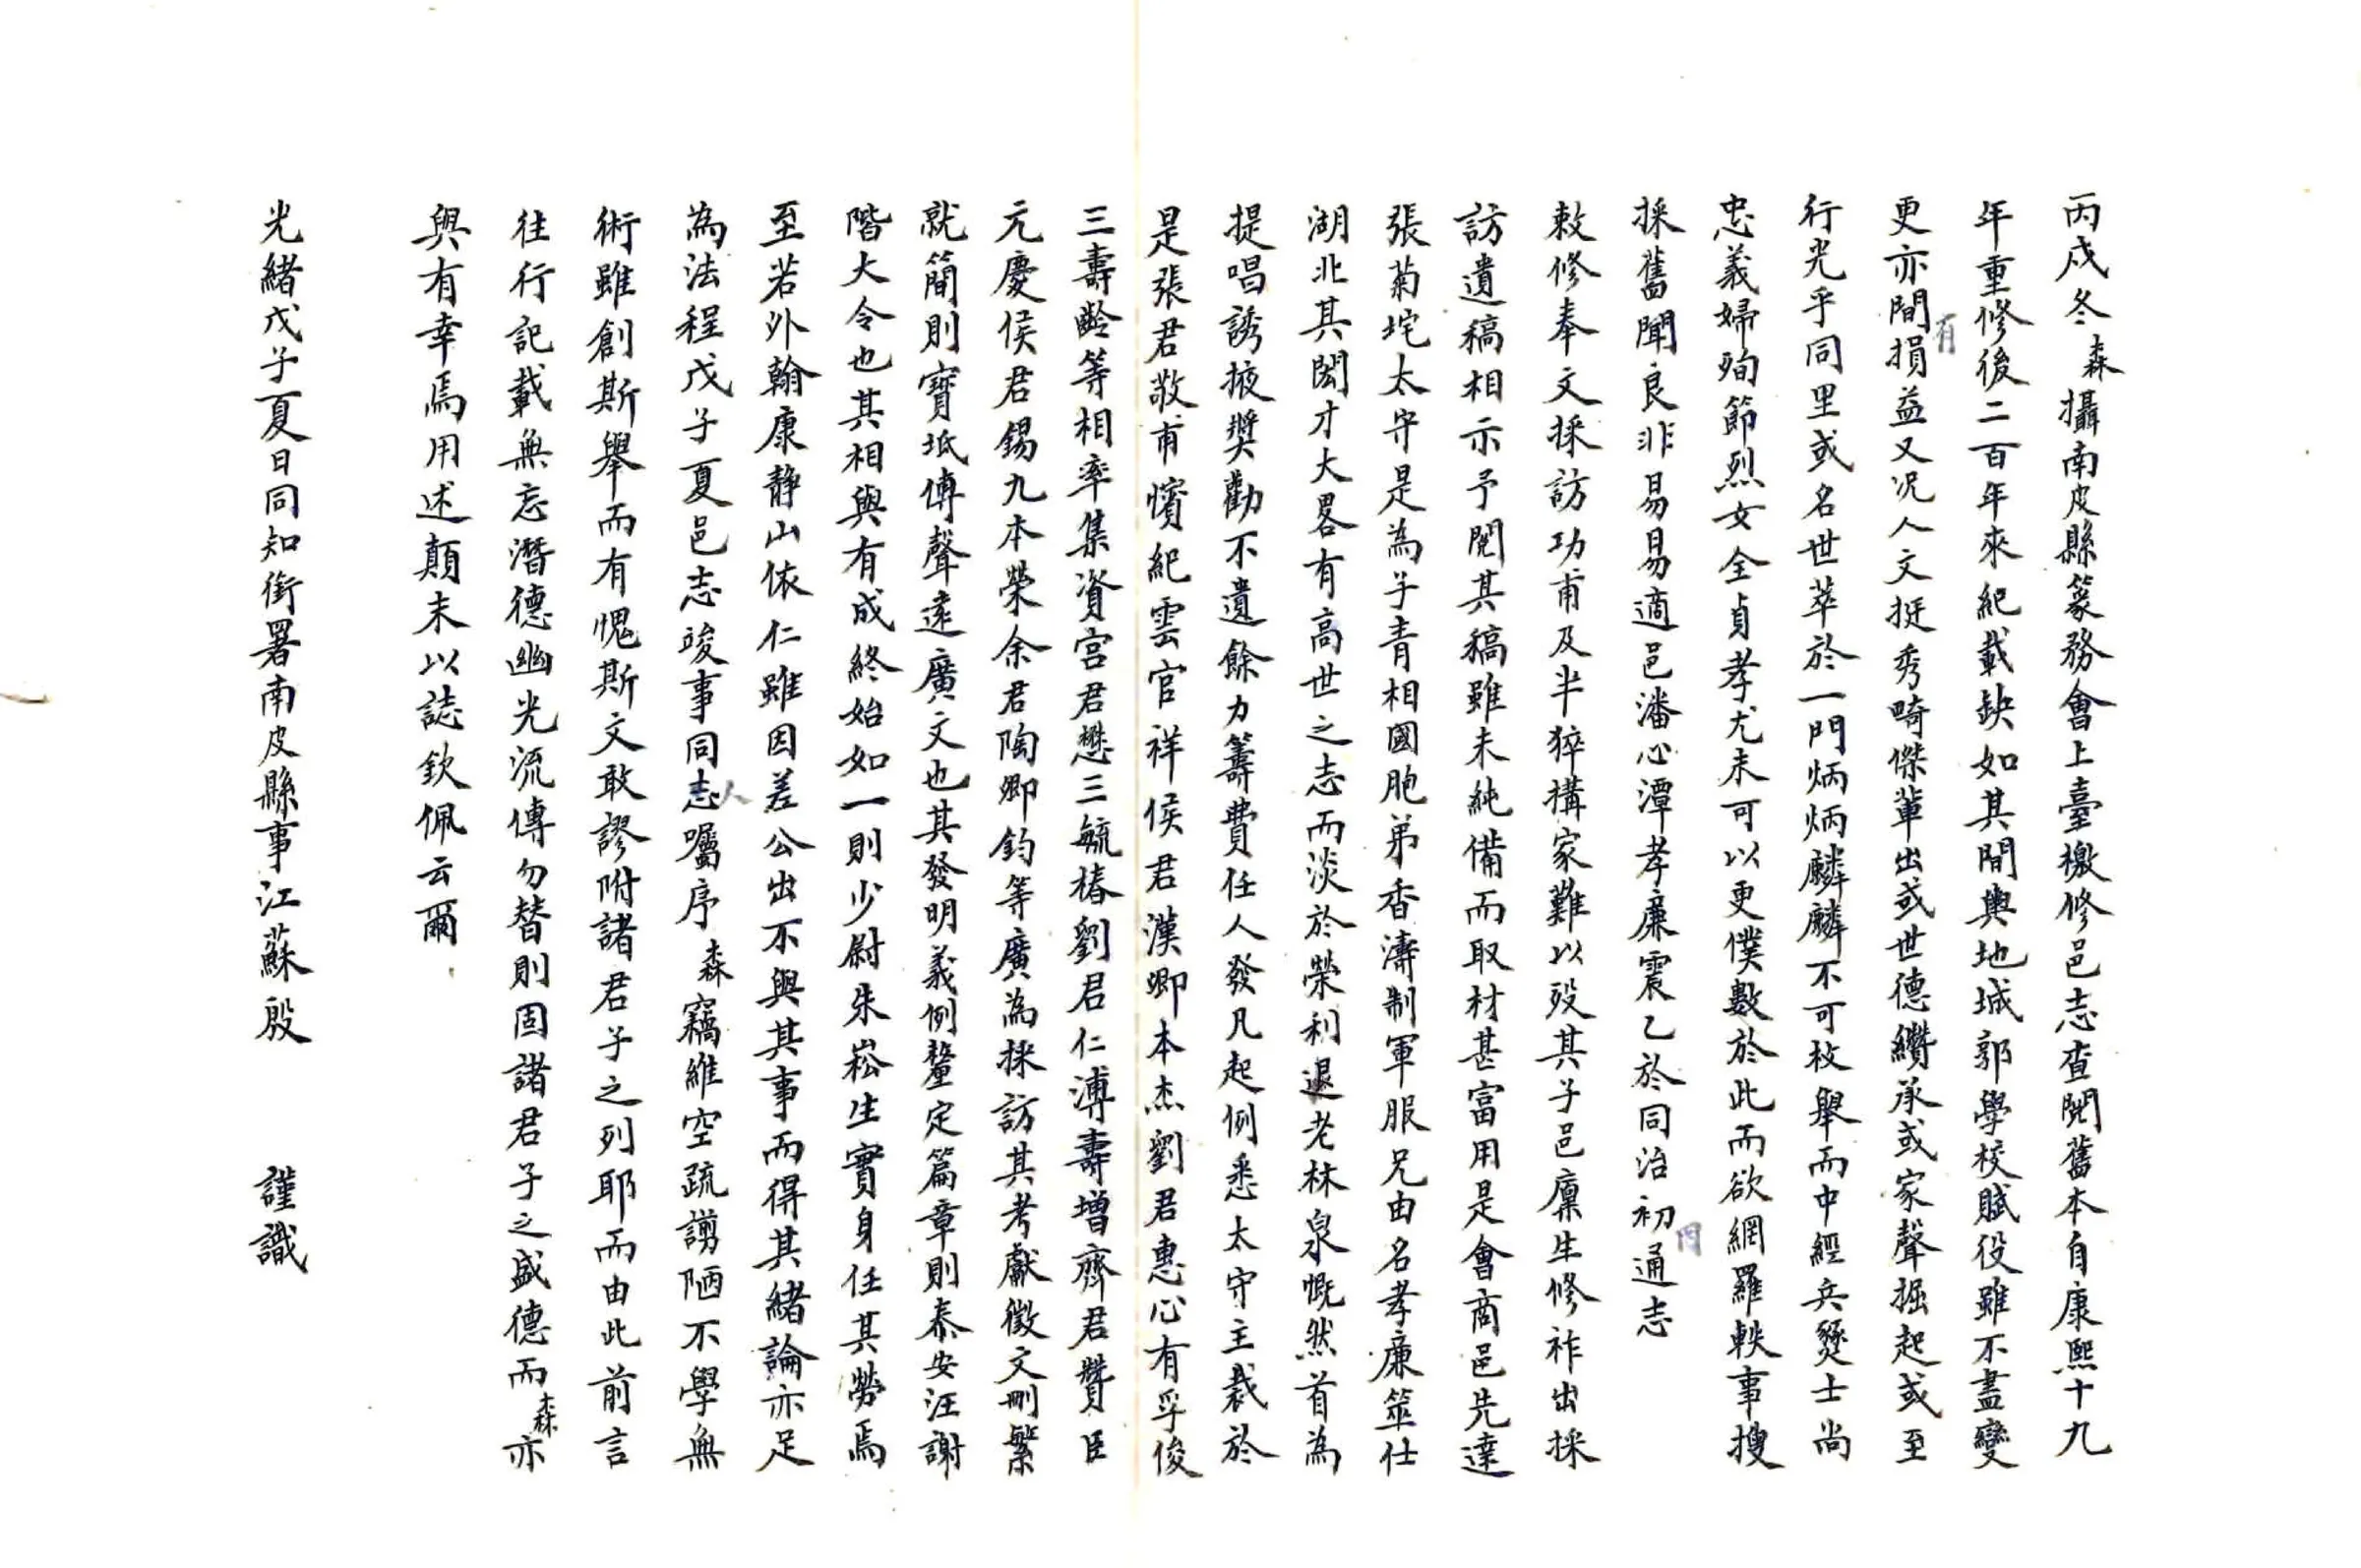 丙戍冬森攝南皮縣篆務會上臺檄修邑志查閱舊本自康熙十九
年重修後二百年來紀載缺如其間輿地城郭學校賦役雖不盡變
更亦間有損益又况人文挺秀畸傑輩出或世德纘承或家聲掘起或至
行光乎同里或名世萃於一門炳炳麟麟不可枚舉而中經兵燹士尚
忠義婦殉節烈女全貞孝尤未可以更僕數於此而欲網羅軼事搜
採舊聞良非易易適邑潘心潭孝廉震乙於同治初通志
敕修奉文採訪功甫及半猝搆家難以歿其子邑廩生修祚出採
訪遺稿相示予閱其稿雖未純備而取材甚富用是會商邑先達
張菊垞太守是為子青相國胞弟香濤制軍服兄由名孝廉筮仕
湖北其閎才大畧有高世之志而淡於榮利退老林泉慨然首為
提唱誘掖獎勸不遺餘力籌費任人發凡起例悉太守主裁於
是張君敬甫懫紀雲官祥侯君漢卿本杰劉君惠心有孚俊
三壽齡等相率集資宫君懋三毓椿劉君仁溥壽增齊君贊臣
元慶侯君錫九本榮余君陶卿鈞等廣為採訪其考獻徵文刪繁
就簡則寶坻傅聲遠廣文也其發明義例釐定篇章則泰安汪謝
階大令也其相與有成終始如一則少尉朱崧生實身任其勞焉
至若外翰康静山依仁雖因差公出不與其事而得其緒論亦足
為法程戊子夏邑志竣事同志人囑序森竊維空疏謭陋不學無
術雖創斯舉而有愧斯文敢謬附諸君子之列耶而由此前言
往行記載無忘潛德幽光流傳勿替則固諸君子之盛德而森亦
與有幸焉用述顛末以誌欽佩云爾
光緒戊子夏日同知銜署南皮縣事江蘇殷 謹識